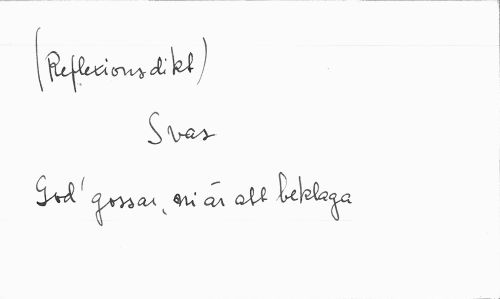 (Reflexionsdikt)
Svar
God' gossar, ni är att beklaga